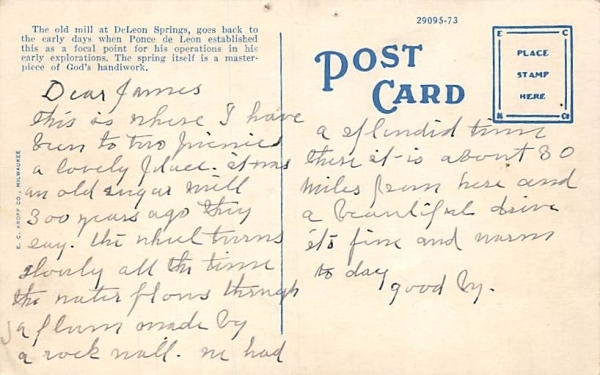 The old mill at DeLeon Springs, goes back to
the early days when Ponce de Leon established
this as a focal point for his operations in his
early explorations. The spring itself is a master-
piece of God's handiwork.
29095-73
POST
CARD
E C
PLACE
STAMP
HERE
K Co
E. C. KROPP CO., MILWAUKEE
Dear James
this is where I have
been to two picnics
a lovely place. it was
an old sugar mill
300 years ago they
say. the wheel turns
slowly all the time
the water flows through
a flum made by
a rock wall. we had
a splendid time
there it is about 30
miles from here and
a beautiful drive
it's fine and warm
to day
good by.